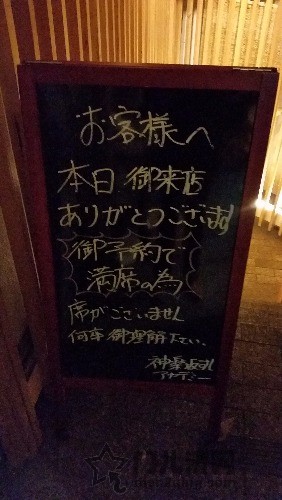 お客様へ
本日御来店
ありがとうございます
御予約で
満席の為
席がございません
何卒御理解下さい。